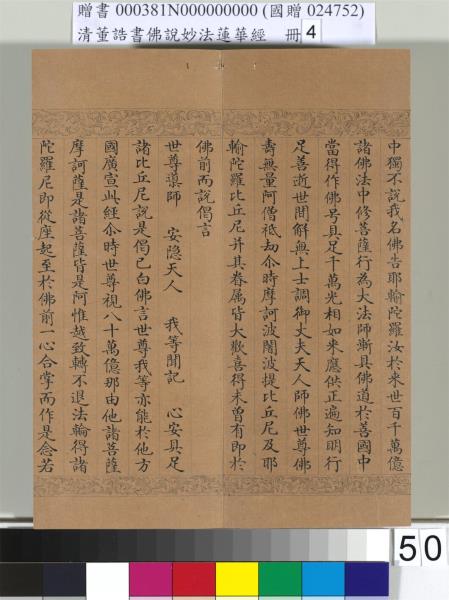 贈書 000381N000000000 (國贈 024752)
清董誥書佛說妙法蓮華經 冊 4
中獨不說我名佛告耶輸陀羅汝於来世百千萬億
諸佛法中修菩薩行為大法師漸具佛道於善國中
當得作佛号具足千萬光相如来應供正遍知明行
足善逝世間解無上士調御丈夫天人師佛世尊佛
壽無量阿僧祇劫尒時摩訶波闍波提比丘尼及耶
輸陀羅比丘尼并其眷属皆大歡喜得未曾有即於
佛前而說偈言
世尊導師 安隐天人 我等聞記 心安具足
諸比丘尼說是偈已白佛言世尊我等亦能於他方
國廣宣此經尒時世尊視八十萬億那由他諸菩薩
摩訶薩是諸菩薩皆是阿惟越致轉不退法輪得諸
陀羅尼即從座起至於佛前一心合掌而作是念若
50